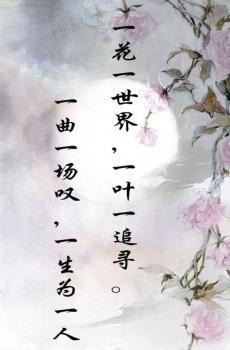 一花一世界，一叶一追寻。
一曲一场叹，一生为一人